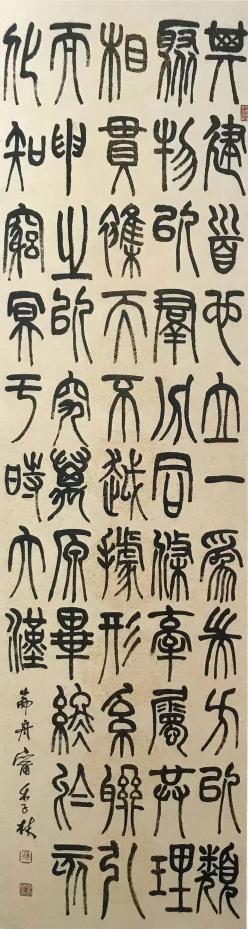 其建首也立一為耑方以類
聚物以羣分同條牽屬共理
相貫雜而不越據形系聯引
而申之以究萬原畢終於亥
化知窮冥于時大漢